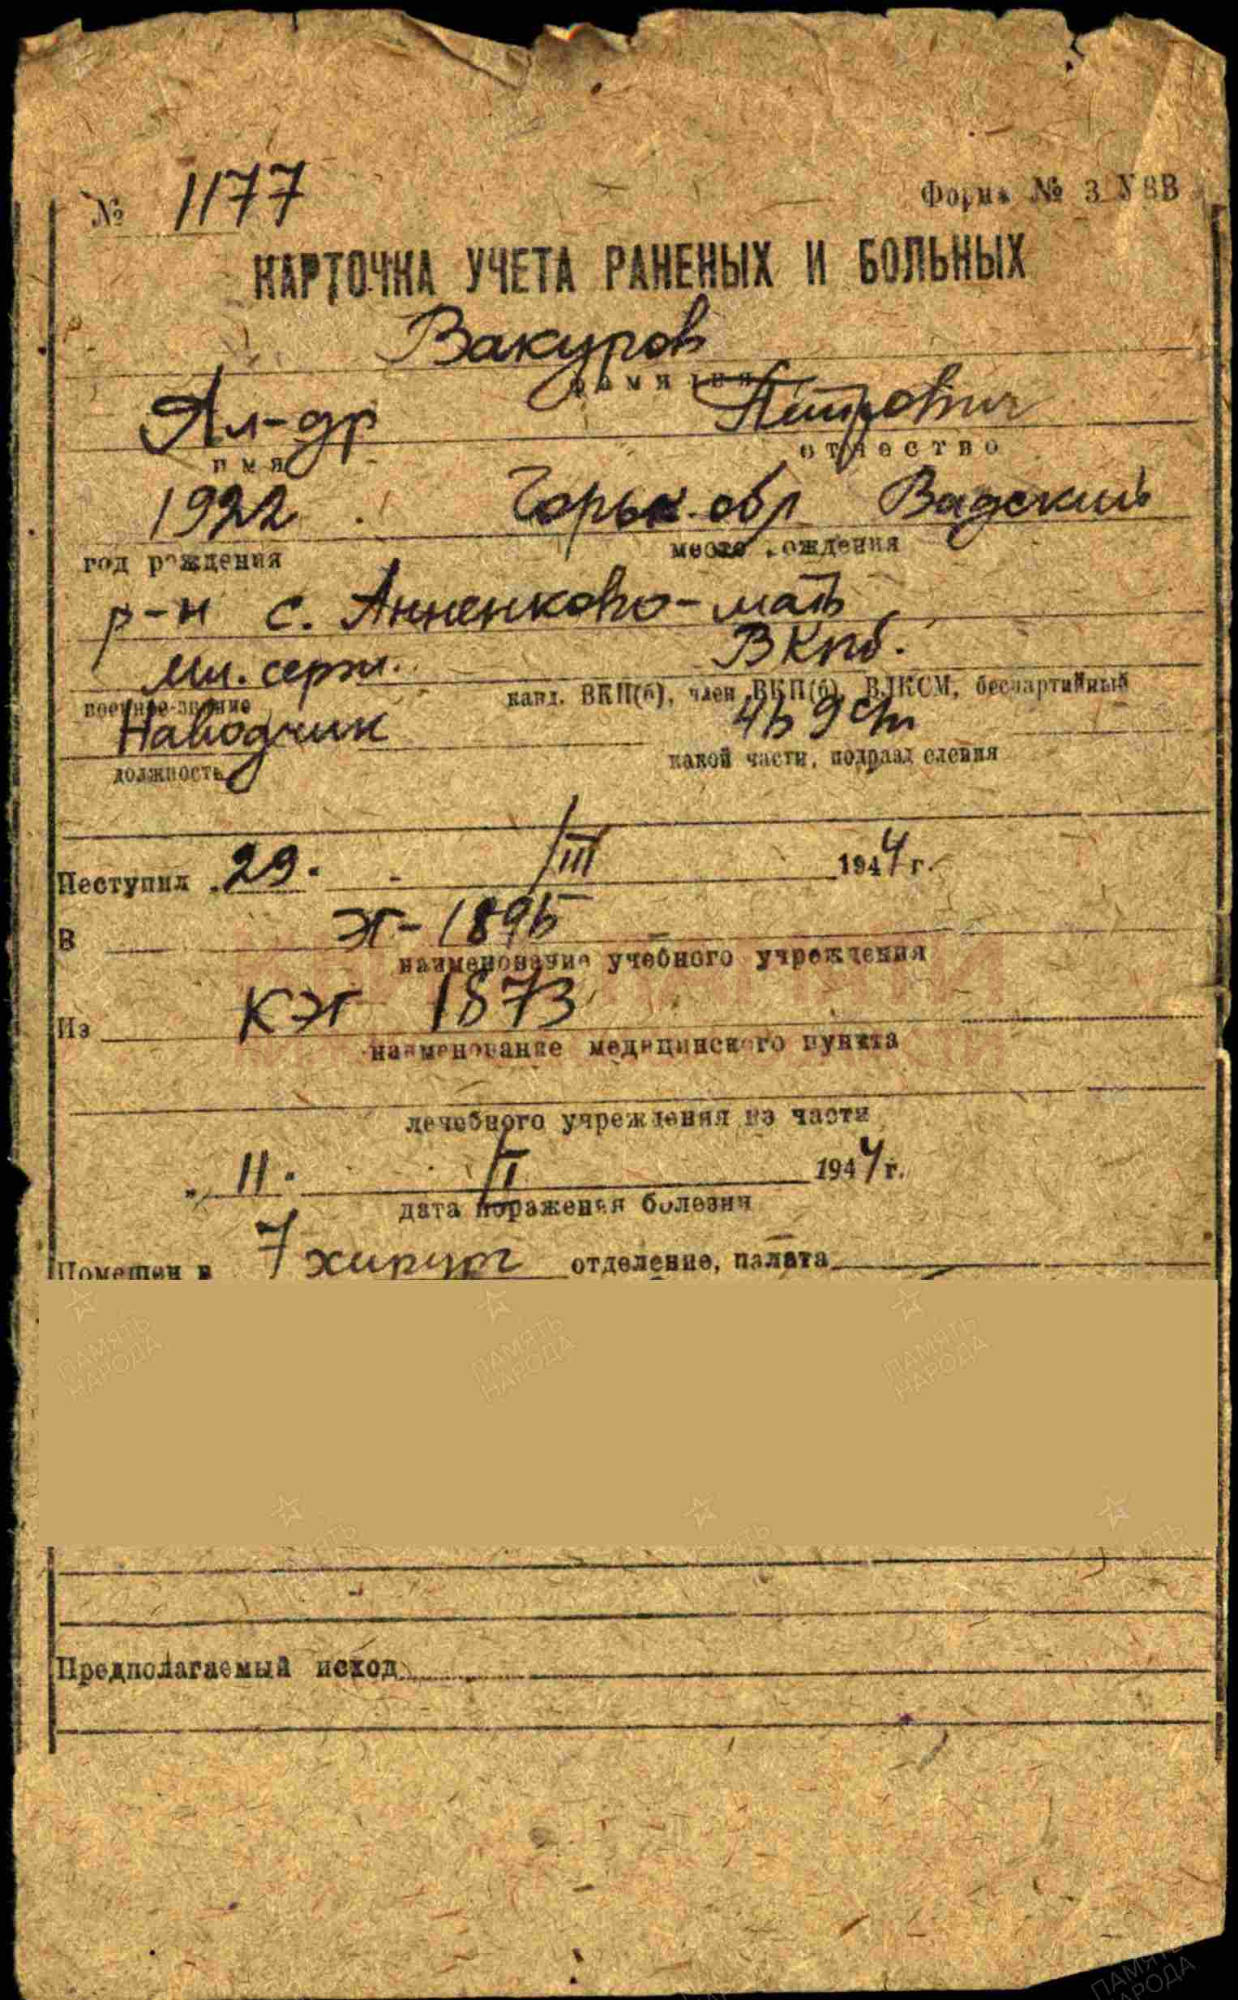 № 1177 Форма № 3 УВВ
КАРТОЧКА УЧЕТА РАНЕНЫХ И БОЛЬНЫХ
Вакуров
фамилия
Ал-др Петрович
имя отчество
1922 Горьк. обл Вадский
год рождения место рождения
р-н с. Анненково - мать
мл. серж. ВКПб.
военное звание канд. ВКП(б), член ВКП(б), ВЛКСМ, беспартийный
Наводчик
должность какой части, подразделения
Поступил „29. /III 1944 г.
В ЭГ-1895
наименование учебного учреждения
Из КЭГ 1873
наименование медицинского пункта
лечебного учреждения из части
„ 11. /I 1944 г.
дата поражения болезни
Помещен в 7 хирург отделение, палата
ПАМЯТЬ НАРОДА
Предполагаемый исход